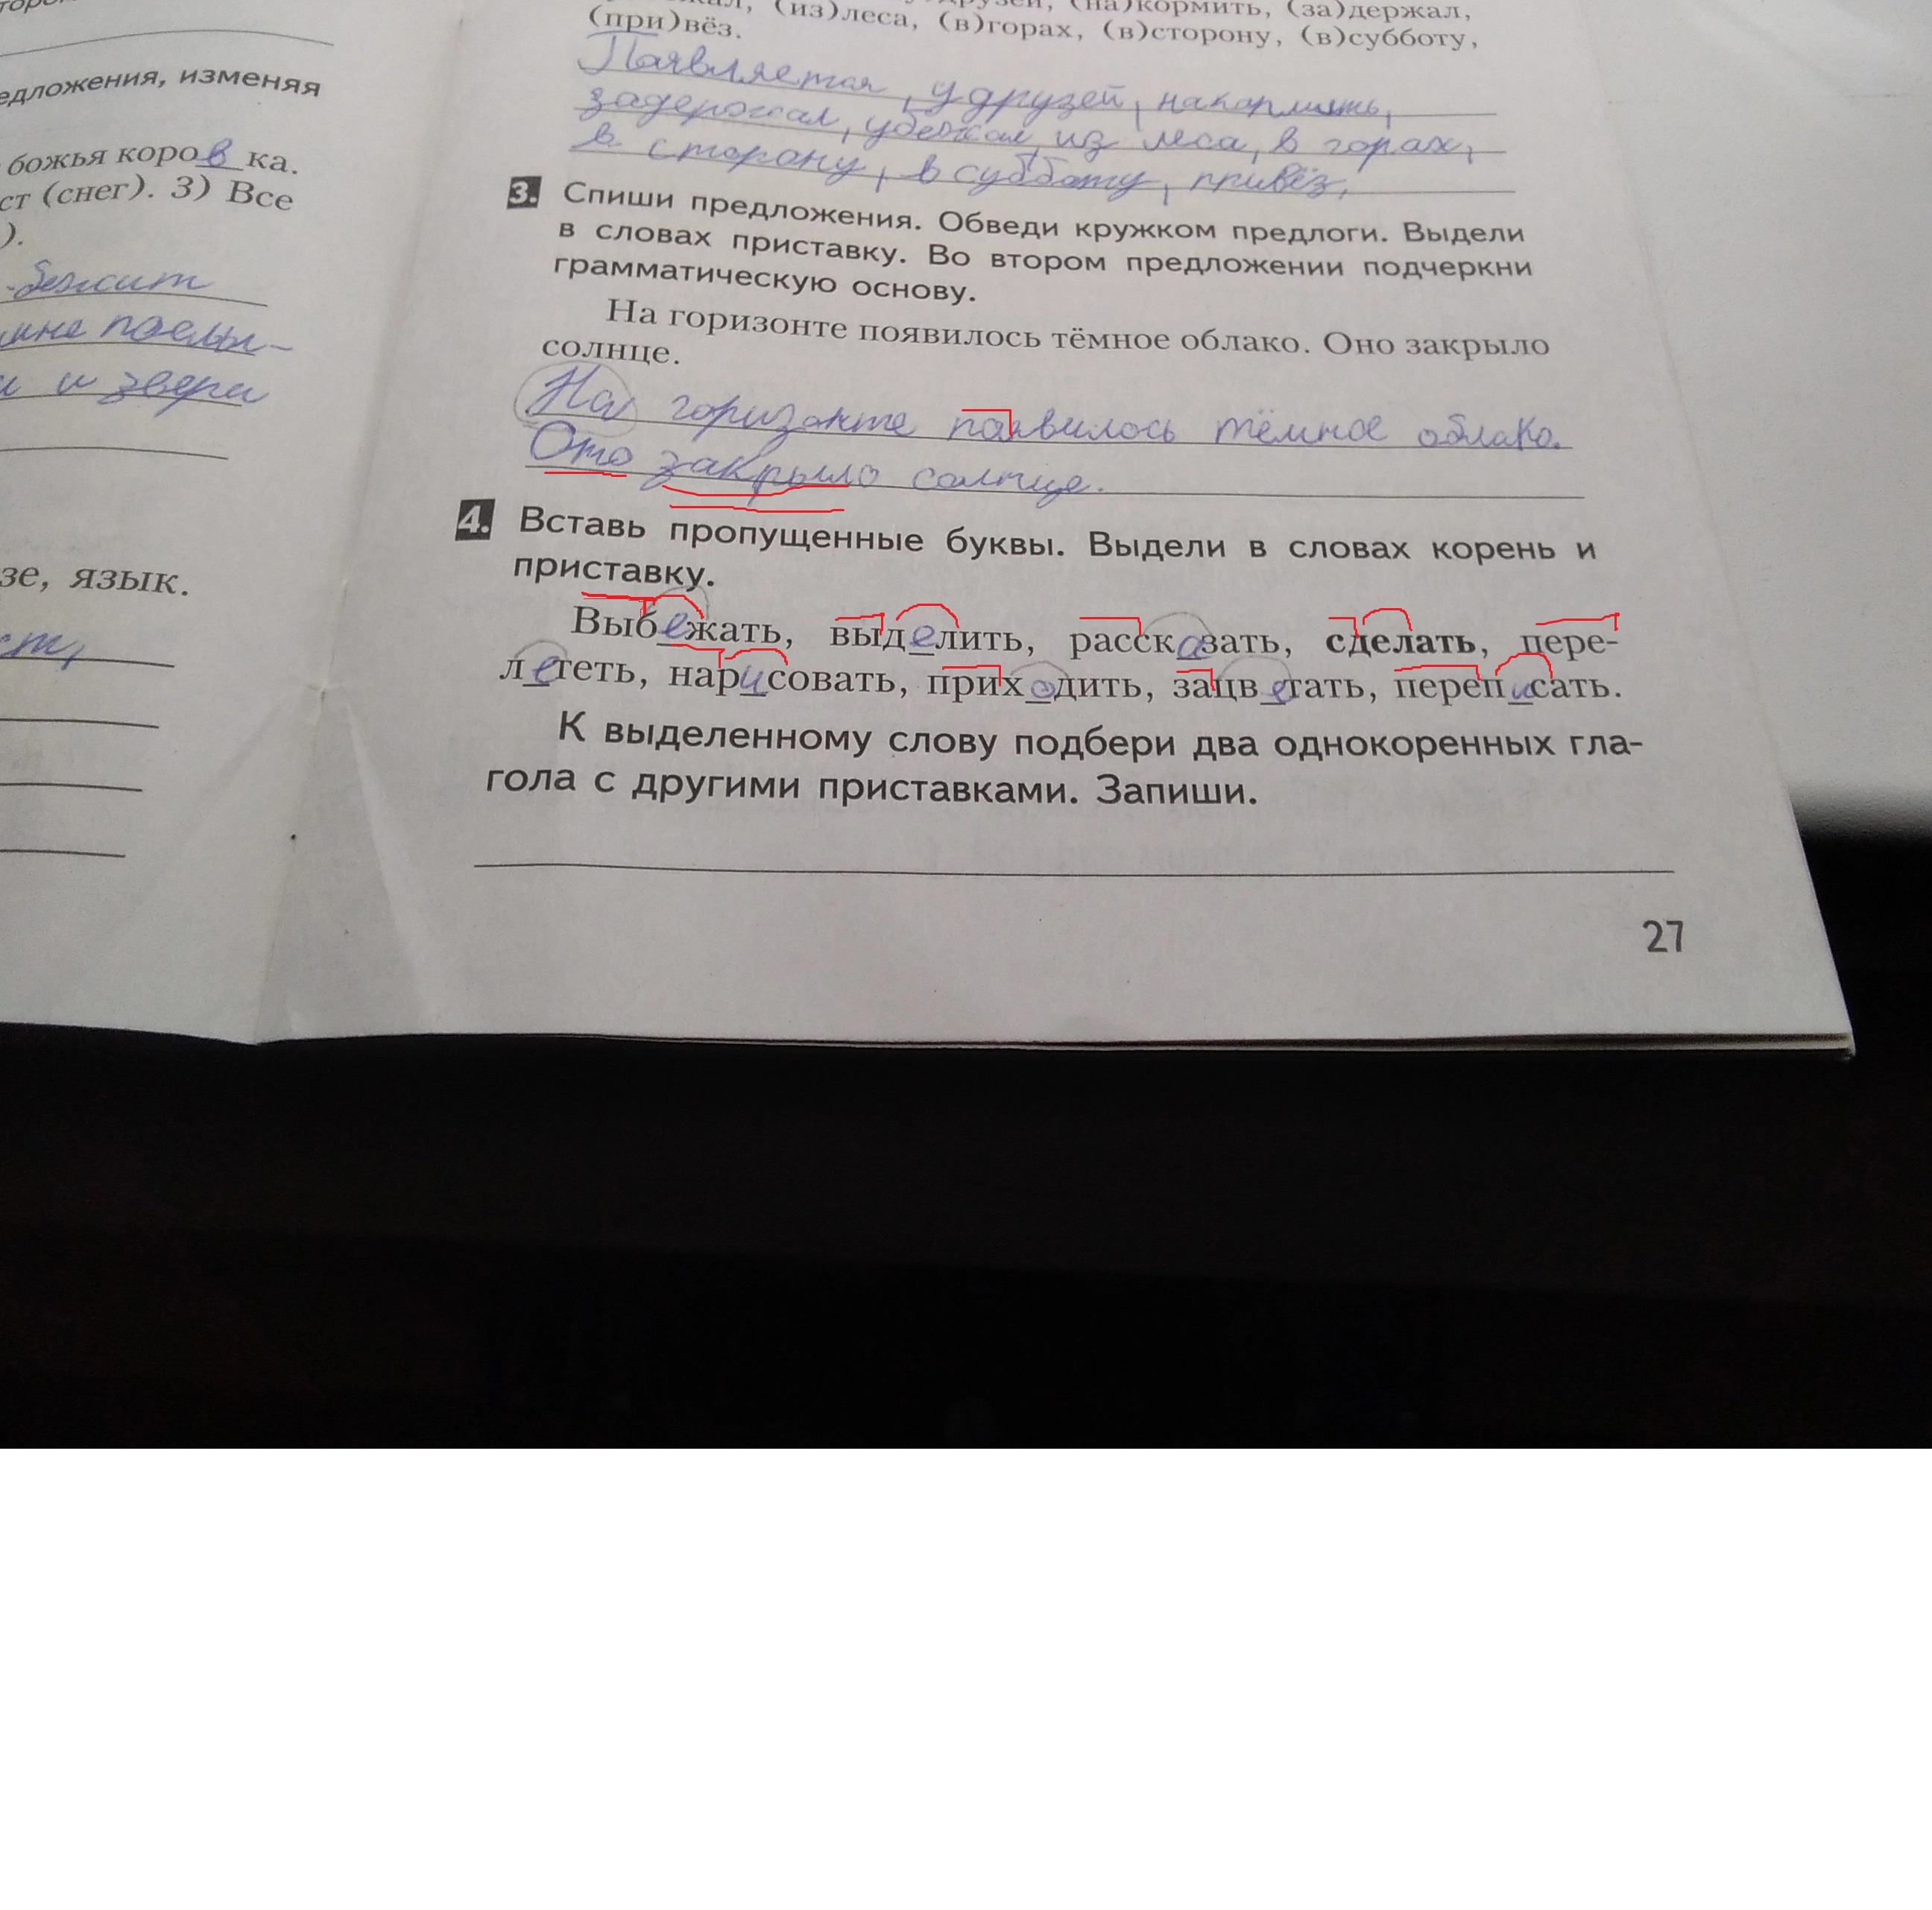 едложения, изменяя
божья коровка.
ст (снег). 3) Все
).
-бежит
мне поелы-
и и звери
зе, язык.
(из)леса, (в)горах, (в)сторону, (в)субботу,
(на)кормить, (за)держал,
(при)вёз.
Паявляется, у друзей, накормить,
задержал, убежал, из леса, в горах,
в сторону, в субботу, привёз.
3. Спиши предложения. Обведи кружком предлоги. Выдели
в словах приставку. Во втором предложении подчеркни
грамматическую основу.
На горизонте появилось тёмное облако. Оно закрыло
солнце.
На горизонте появилось тёмное облако.
Оно закрыло солнце.
4. Вставь пропущенные буквы. Выдели в словах корень и
приставку.
Выбежать, выделить, рассказать, сделать, пере-
лететь, нарисовать, приходить, зацветать, переписать.
К выделенному слову подбери два однокоренных гла-
гола с другими приставками. Запиши.
27